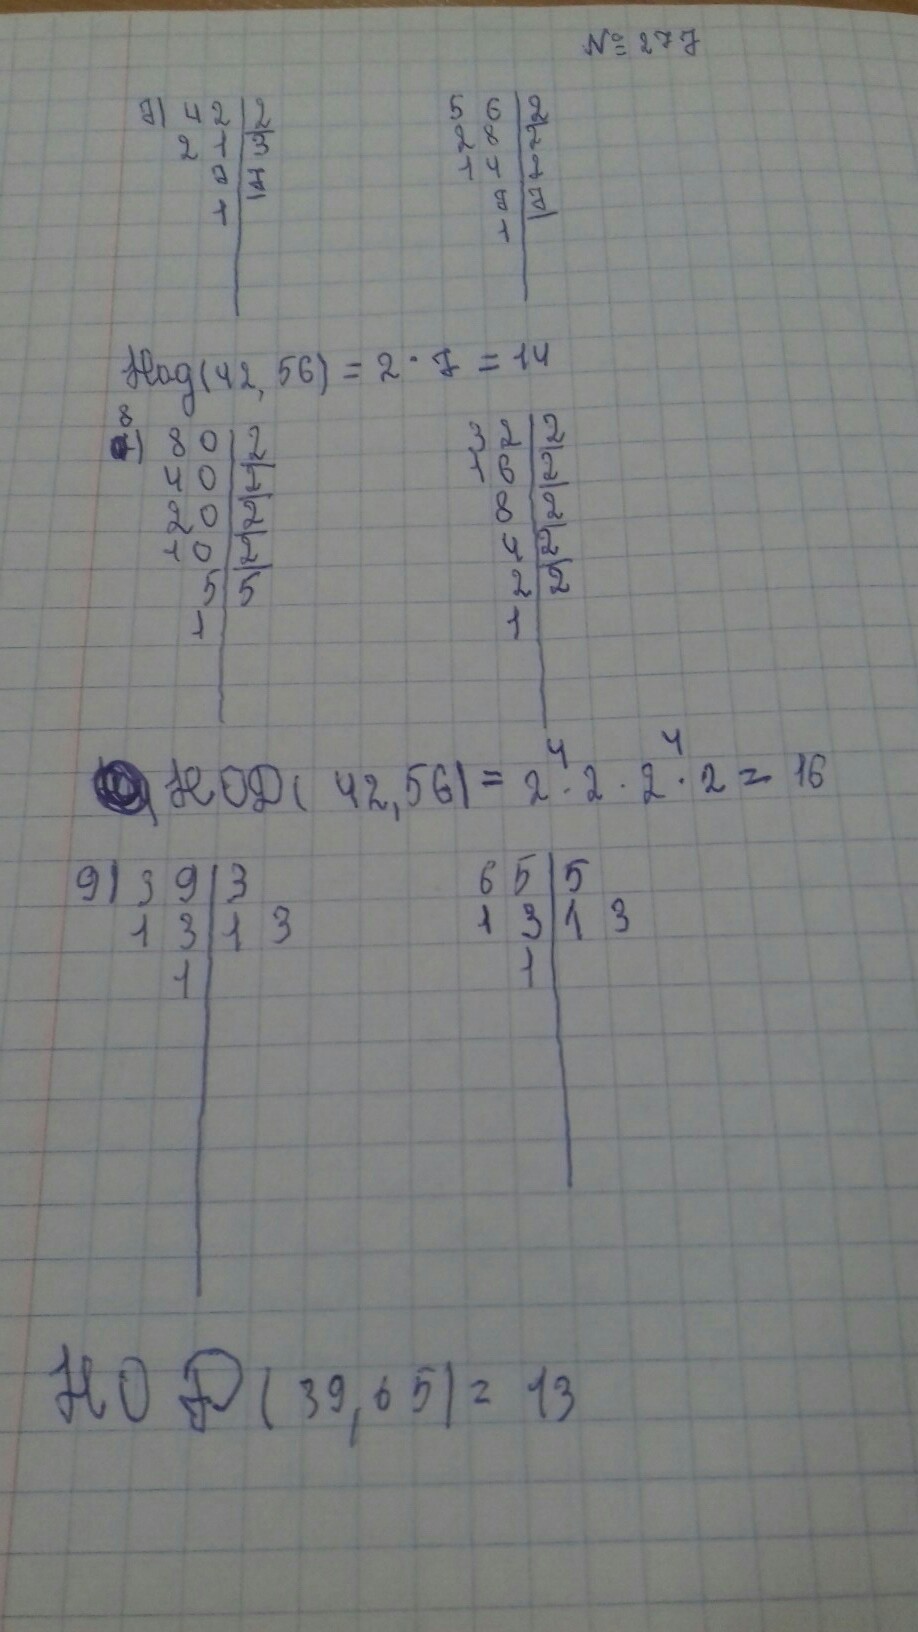 № 277
7) 42 | 2 56 | 2
21 | 3 28 | 2
7 | 7 14 | 2
1 | 7 | 7
1 |
Нод(42, 56) = 2 · 7 = 14
8) 80 | 2 32 | 2
40 | 2 16 | 2
20 | 2 8 | 2
10 | 2 4 | 2
5 | 5 2 | 2
1 | 1 |
НОД(42,56) = 2 · 2 · 2 · 2 = 16
4 4
9) 39 | 3 65 | 5
13 | 13 13 | 13
1 | 1 |
НОД(39,65) = 13